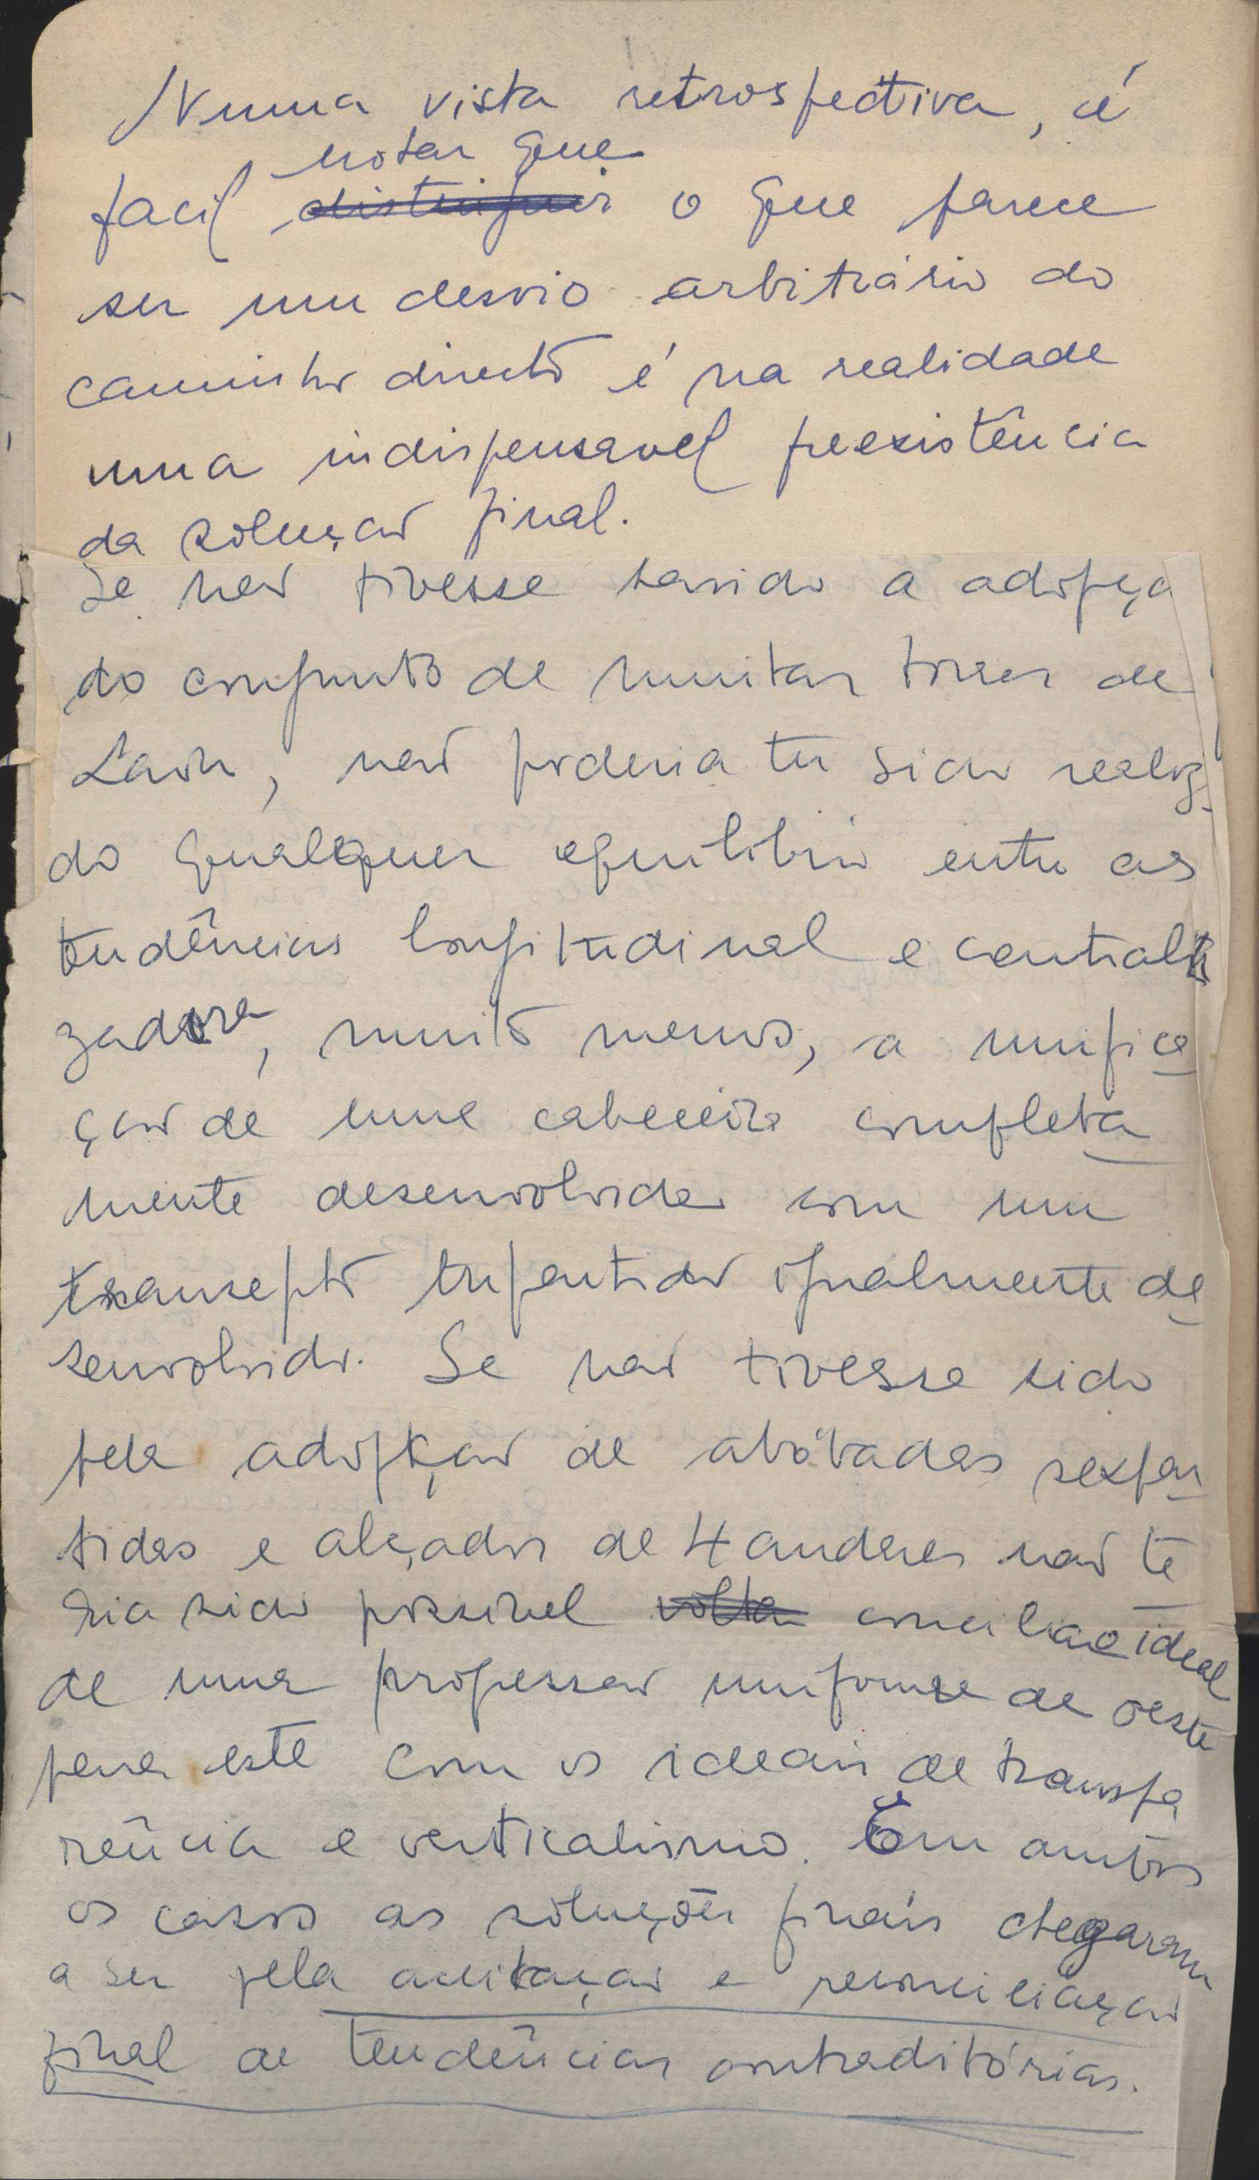 Numa vista retrospectiva, é
notar que
facil distinguir o que parece
ser um desvio arbitrário do
caminho directo é na realidade
uma indispensavel preexistência
da solução final.
Se não tivesse havido a adopçã
do conjunto de muitas torres de
Laon, não poderia ter sido realiz
do qualquer equilibrio entre as
tendências longitudinal e centrali
zadora, muito menos, a unifica
ção de uma cabeceira completa
mente desenvolvida com um
transepto tripartido igualmente de
senvolvido. Se não tivesse sido
pela adopção de abóbadas sexpar
tidas e alçados de 4 andares não te
ria sido possivel volta conciliar o ideal
de uma progressão uniforme de oeste
para este com os ideais de transpa
rência e verticalismo. Em ambos
os casos as soluções finais chegaram
a ser pela aceitação e reconciliação
final de tendências contraditórias.